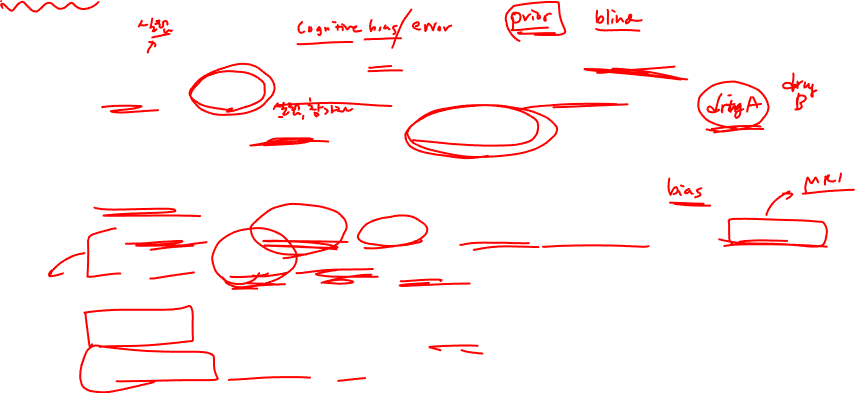 cognitive bias/error
prior
blind
drug A
drug B
bias
MRI